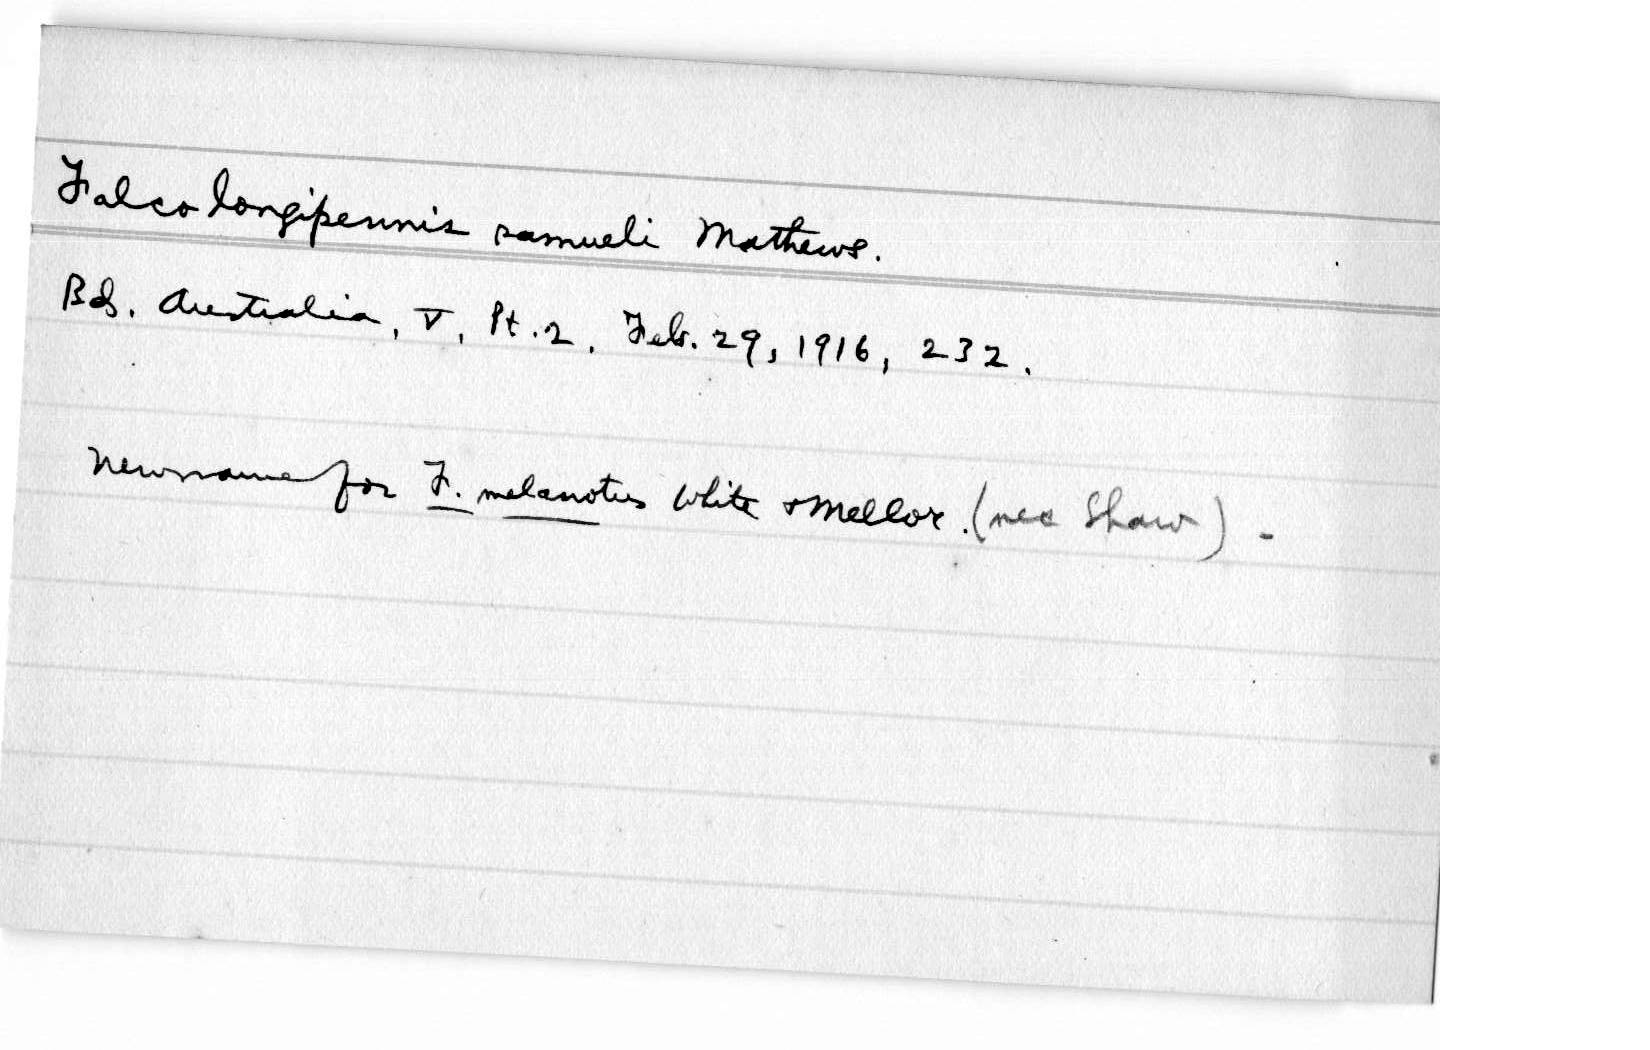 Falco longipennis samueli Mathews.
Bds. Australia, V, Pt. 2, Feb. 29, 1916, 232.
New name for F. melanotus White & Mellor. (nec Shaw) -